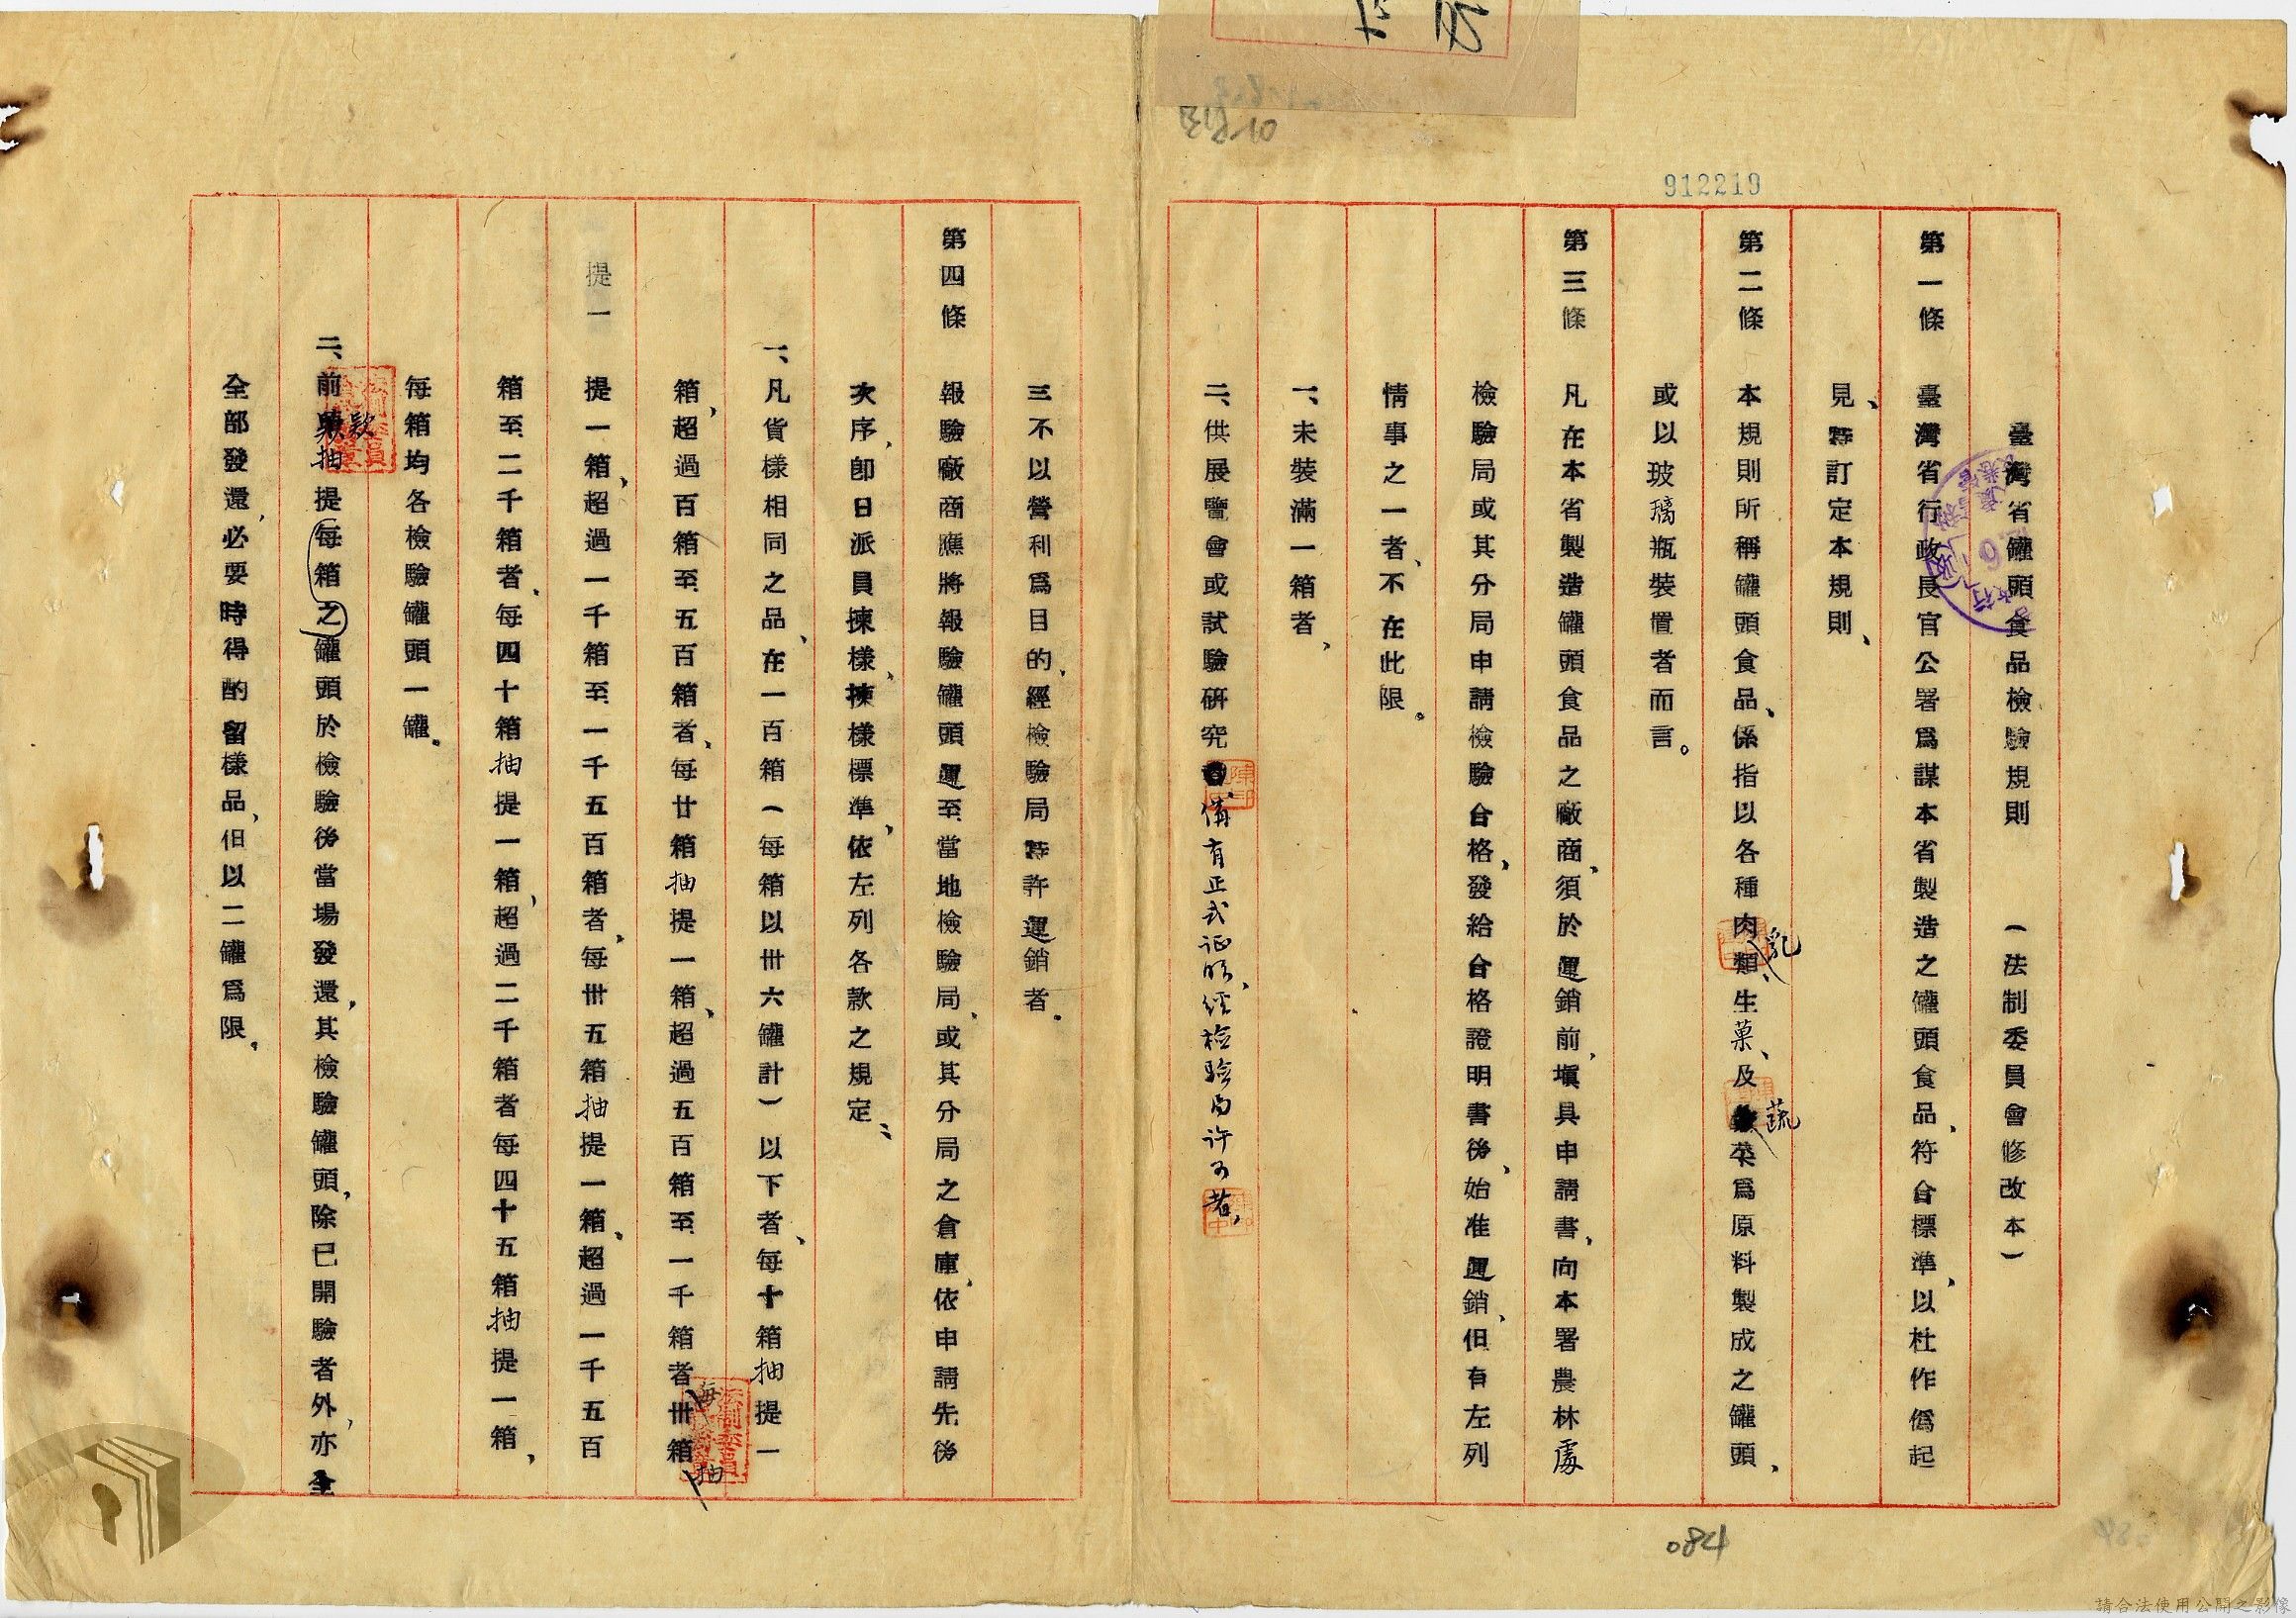 912219
臺灣省罐頭食品檢驗規則　（法制委員會修改本）
第一條　臺灣省行政長官公署爲謀本省製造之罐頭食品、符合標準、以杜作僞起
見、特訂定本規則、
第二條　本規則所稱罐頭食品、係指以各種肉乳類、生菓、及蔬菜爲原料製成之罐頭、
或以玻璃瓶裝置者而言。
第三條　凡在本省製造罐頭食品之廠商、須於運銷前、塡具申請書、向本署農林處
檢驗局或其分局申請檢驗合格、發給合格證明書後、始准運銷、但有左列
情事之一者、不在此限。
一、未裝滿一箱者、
二、供展覽會或試驗研究、備有正式证明、经检验局许可者、
三不以營利爲目的、經檢驗局特許運銷者。
第四條　報驗廠商應將報驗罐頭運至當地檢驗局、或其分局之倉庫、依申請先後
次序、卽日派員揀樣、揀樣標準、依左列各款之規定：
一、凡貨樣相同之品、在一百箱（每箱以卅六罐計）以下者、每十箱抽提一
箱、超過百箱至五百箱者、每廿箱抽提一箱、超過五百箱至一千箱者每卅箱抽
提一　提一箱、超過一千箱至一千五百箱者、每卅五箱抽提一箱、超過一千五百
箱至二千箱者、每四十箱抽提一箱、超過二千箱者每四十五箱抽提一箱、
每箱均各檢驗罐頭一罐。
二、前款抽提每箱之罐頭於檢驗後當場發還、其檢驗罐頭、除已開驗者外、亦全
全部發還、必要時得酌留樣品、但以二罐爲限。
084
請合法使用公開之影像